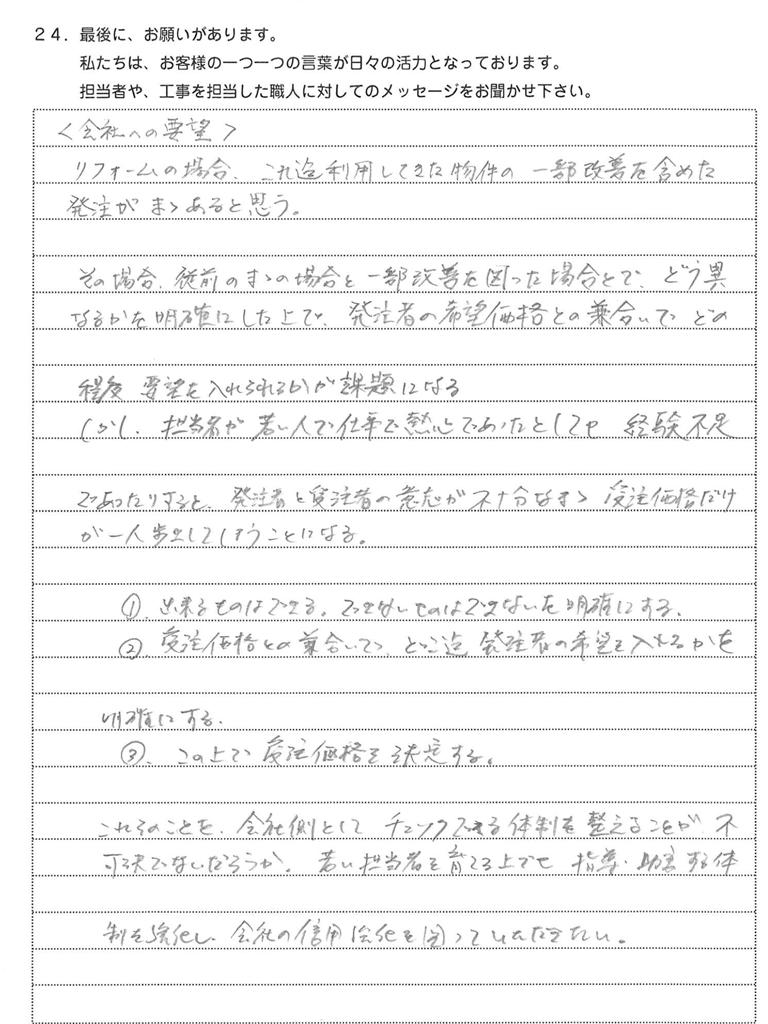 ２４．最後に、お願いがあります。
私たちは、お客様の一つ一つの言葉が日々の活力となっております。
担当者や、工事を担当した職人に対してのメッセージをお聞かせ下さい。
＜会社への要望＞
リフォームの場合、これ迄利用してきた物件の一部改善を含めた
発注がまゝあると思う。
その場合、従前のまゝの場合と一部改善を図った場合とで、どう異
なるかを明確にした上で、発注者の希望価格との兼合いで どの
程度 要望を入れられるかが課題になる
しかし、担当者が若い人で仕事で熱心であったとしても 経験不足
であったりすると、発注者と受注者の意志が不十分なまゝ 受注価格だけ
が一人歩きしてしまうことになる。
①．出来るものはできる。できないものはできないを明確にする。
②．受注価格との兼合いで、どこ迄 発注者の希望を入れるかを
明確にする。
③．この上で 受注価格を決定する。
これらのことを、会社側として チェックできる体制を整えることが不
可欠でないだろうか。若い担当者を育てる上でも 指導・助言する体
制を強化し、会社の信用強化を図っていただきたい。